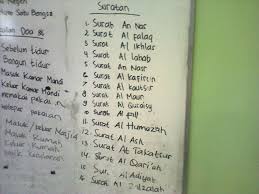 Suratan
1. Surat An Nas
2. Surat Al falaq
3. Surat Al ikhlas
4. Surat Al lahab
5. Surat An Nasr
6. Surat Al kafirun
7. Surat Al kautsar
8. Surat Al Maun
9. Surat Al Quraisy
10. Surat Al fill
11. Surat Al Humazah
12. Surat Al Ash
13. Surat At Takatsur
14. Surat Al Qari'ah
15. Sur Al Adiyat
16. Surat Al Zilzalah
Satu Bangsa
Doa
Sebelum tidur
Bangun tidur
Masuk kamar Mandi
Keluar kamar Mandi
memakai pakaian
pakaian
Masuk / Keluar Masjid
Masuk Rumah